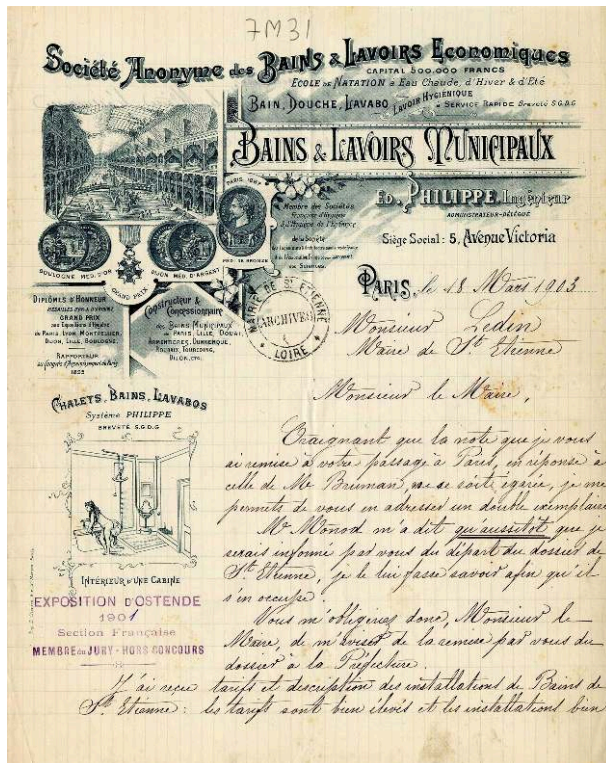 7M31
Société Anonyme des Bains & Lavoirs Economiques
CAPITAL 500.000 FRANCS
ECOLE DE NATATION à Eau Chaude, d'Hiver & d'Eté
BAIN, DOUCHE, LAVABO LAVOIR HYGIÉNIQUE à SERVICE RAPIDE Breveté S.G.D.G
BAINS & LAVOIRS MUNICIPAUX
ED. PHILIPPE, Ingénieur
ADMINISTRATEUR-DÉLÉGUÉ
Siège Social: 5, Avenue Victoria
PARIS, 1887
Membre des Sociétés
française d'Hygiène
de la Société
BOULOGNE MÉD. D'OR
GRAND PRIX
DIJON MÉD. D'ARGENT
DIPLÔMES D'HONNEUR
GRAND PRIX
aux Expositions d'Hygiène
de PARIS, LYON, MONTPELLIER,
DIJON, LILLE, BOULOGNE
RAPPORTEUR
1895
Constructeur &
Concessionnaire
des BAINS MUNICIPAUX
de PARIS, LILLE, DOUAI,
ARMENTIÈRES, DUNKERQUE,
ROUBAIX, TOURCOING,
DIJON, ETC.
MAIRIE DE ST ETIENNE
ARCHIVES
LOIRE
PARIS, le 18 Mars 1903
Monsieur Ledin
Maire de St Etienne
Monsieur le Maire,
CHALETS, BAINS, LAVABOS
Système PHILIPPE
BREVETÉ S.G.D.G
INTÉRIEUR D'UNE CABINE
EXPOSITION D'OSTENDE
1901
Section Française
MEMBRE du JURY - HORS CONCOURS
Craignant que la note que je vous
ai remise à votre passage à Paris, en réponse à
celle de Mr Bruman, ne se soit égarée, je me
permets de vous en adresser un double exemplaire
Mr Monod m'a dit qu'aussitôt que je
serais informé par vous du départ du dossier de
St Etienne, je le lui fasse savoir afin qu'il
s'en occupe.
Vous m'obligeriez donc, Monsieur le
Maire, de m'aviser de la remise par vous du
dossier à la Préfecture.
J'ai reçu tarifs et description des installations de Bains de
St Etienne: les tarifs sont bien élevés et les installations bien